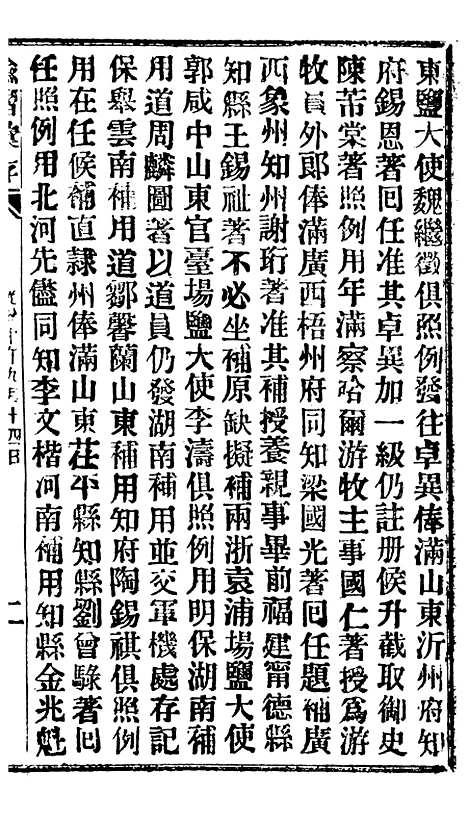 東鹽大使魏繼徵俱照例發往卓異俸滿山東沂州府知
府錫恩著回任准其卓異加一級仍註册候升截取御史
陳芾棠著照例用年滿察哈爾游牧主事國仁著授爲游
牧員外郎俸滿廣西梧州府同知梁國光著回任題補廣
西象州知州謝珩著准其補授養親事畢前福建甯德縣
知縣王錫祉著不必坐補原缺擬補兩浙袁浦場鹽大使
郭咸中山東官臺場鹽大使李濤俱照例用明保湖南補
用道周麟圖著以道員仍發湖南補用並交軍機處存記
保舉雲南補用道鄒馨蘭山東補用知府陶錫祺俱照例
用在任候補直隷州俸滿山東茌平縣知縣劉曾騄著回
任照例用北河先儘同知李文楷河南補用知縣金兆魁
諭摺彙存
年九月十四日
二